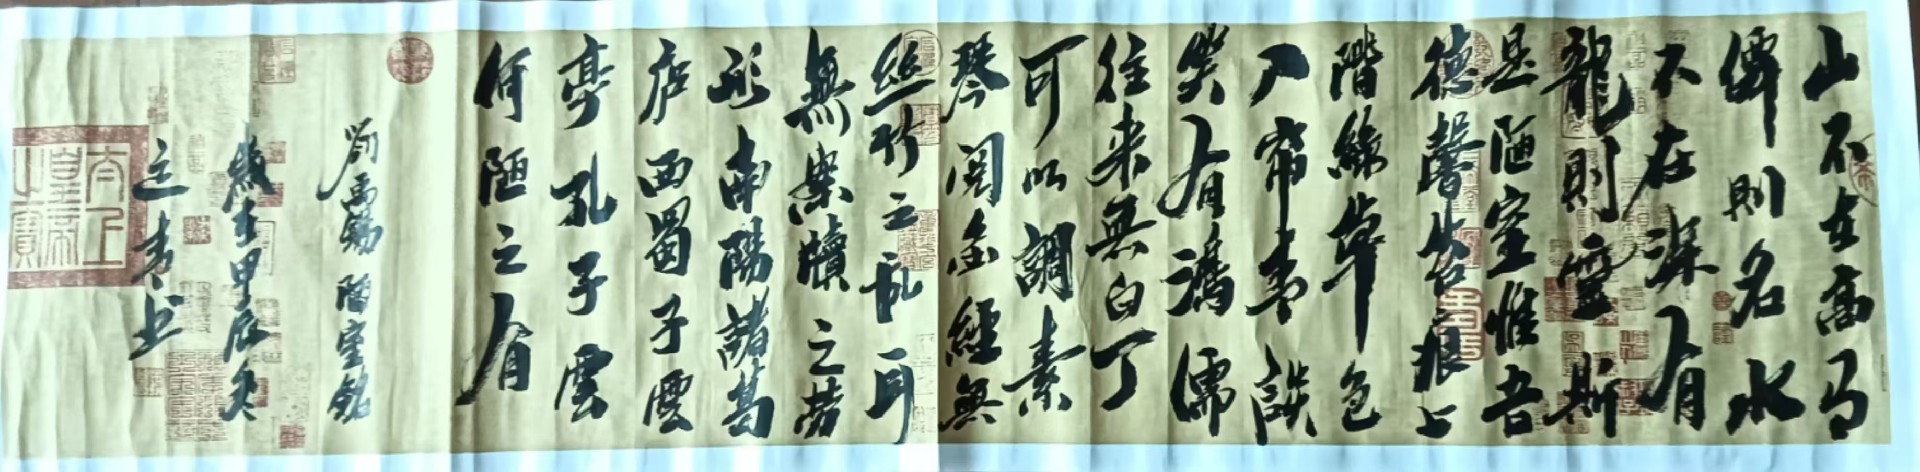 山不在高有
僊則名水
不在深有
龍則靈斯
是陋室惟吾
德馨苔痕上
階綠草色
入帘青談
笑有鴻儒
往来無白丁
可以調素
琴閱金經無
絲竹之乱耳
無案牘之勞
形南陽諸葛
庐西蜀子雲
亭孔子雲
何陋之有
劉禹錫陋室銘
歲在甲辰冬
太上
皇帝
之寶